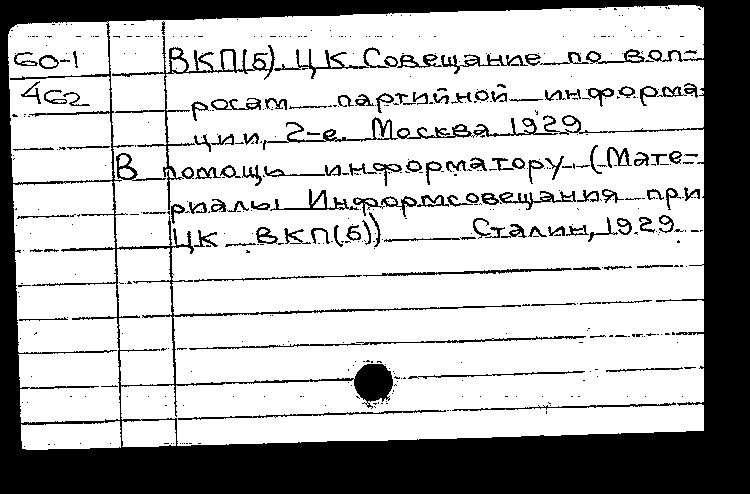 60-1 ВКП(б). ЦК Совещание по воп-
462 росам партийной информа-
ции, 2-е. Москва. 1929.
В помощь информатору. (Мате-
риалы Информсовещания при
ЦК ВКП(б)) Сталин, 1929.